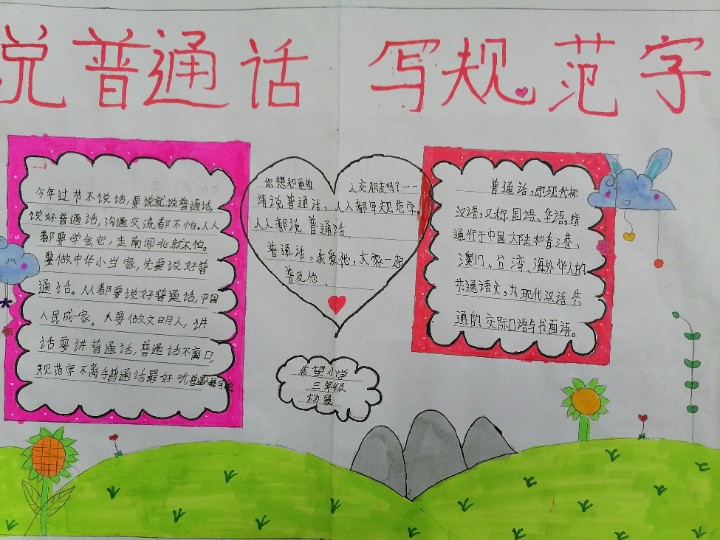 说普通话 写规范字
今年过节不说话,要说就说普通话
说好普通话,沟通交流都不怕。人人
都要学会它,走南闯北就不怕。
要做中华小当家,先要说好普
通话。人人都要说好普通话,中国
人民成一家。人要做文明人,讲
话要讲普通话,普通话不离口,
规范字不离手普通话最好
你想和通 人交朋友吗?
请说普通话,人人都写规范字。
人人都说普通话
普通话,我爱他,大家一起
普及他。
希望小学
三年级
普通话,即现代标
汉语,又称国语、华语,指
通行于中国大陆和台、港、
澳门、台湾、海外华人的
共通语文,为现代汉语共
通的交际口语与书面语。